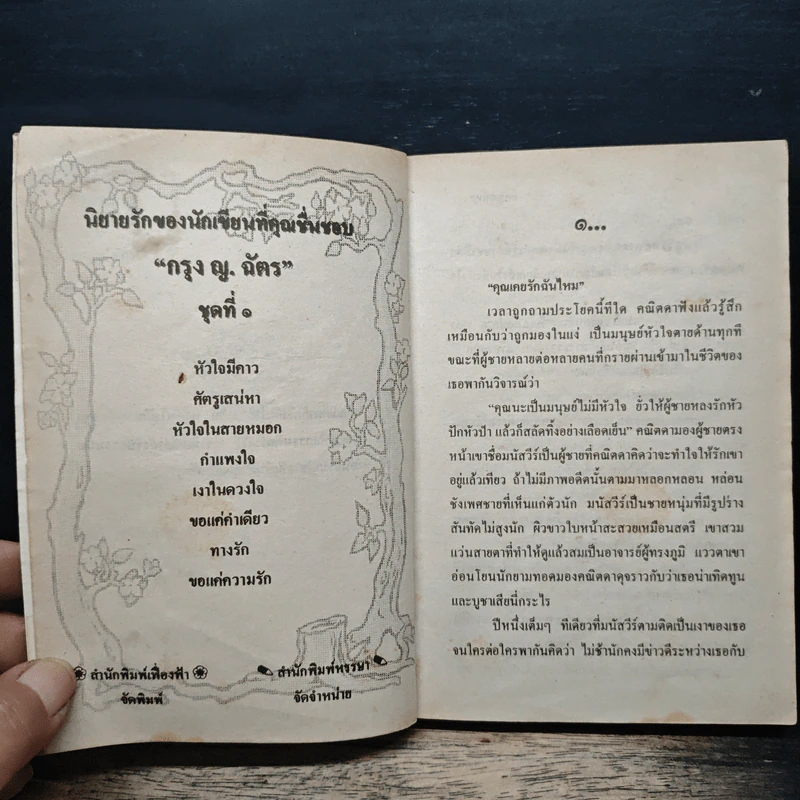 นิยายรักของนักเขียนที่คุณชื่นชอบ
“กรุง ญ. ฉัตร”
ชุดที่ ๑
หัวใจมีคาว
ศัตรูเสน่หา
หัวใจในสายหมอก
กำแพงใจ
เงาในดวงใจ
ขอแค่คำเดียว
ทางรัก
ขอแค่ความรัก
สำนักพิมพ์เฟื่องฟ้า
จัดพิมพ์
สำนักพิมพ์หรรษา
จัดจำหน่าย
๑...
“คุณเคยรักฉันไหม”
เวลาถูกถามประโยคนี้ทีใด คณิตดาฟังแล้วรู้สึก
เหมือนกับว่าถูกมองในแง่ เป็นมนุษย์หัวใจตายด้านทุกที
ขณะที่ผู้ชายหลายต่อหลายคนที่กรายผ่านเข้ามาในชีวิตของ
เธอพากันวิจารณ์ว่า
“คุณนะเป็นมนุษย์ไม่มีหัวใจ ยั่วให้ผู้ชายหลงรักหัว
ปักหัวปำ แล้วก็สลัดทิ้งอย่างเลือดเย็น” คณิตดามองผู้ชายตรง
หน้าเขาชื่อมนัสวีร์เป็นผู้ชายที่คณิตดาคิดว่าจะทำใจให้รักเขา
อยู่แล้วเทียว ถ้าไม่มีภาพอดีตนั้นตามมาหลอกหลอน หล่อน
ชังเพศชายที่เห็นแก่ตัวนัก มนัสวีร์เป็นชายหนุ่มที่มีรูปร่าง
สันทัดไม่สูงนัก ผิวขาวใบหน้าสะสวยเหมือนสตรี เขาสวม
แว่นสายตาที่ทำให้ดูแล้วสมเป็นอาจารย์ผู้ทรงภูมิ แววตาเขา
อ่อนโยนนักยามทอดมองคณิตดาดุจราวกับว่าเธอน่าเทิดทูน
และบูชาเสียนี่กระไร
ปีหนึ่งเต็มๆ ทีเดียวที่มนัสวีร์ตามติดเป็นเงาของเธอ
จนใครต่อใครพากันคิดว่า ไม่ช้านักคงมีข่าวดีระหว่างเธอกับ